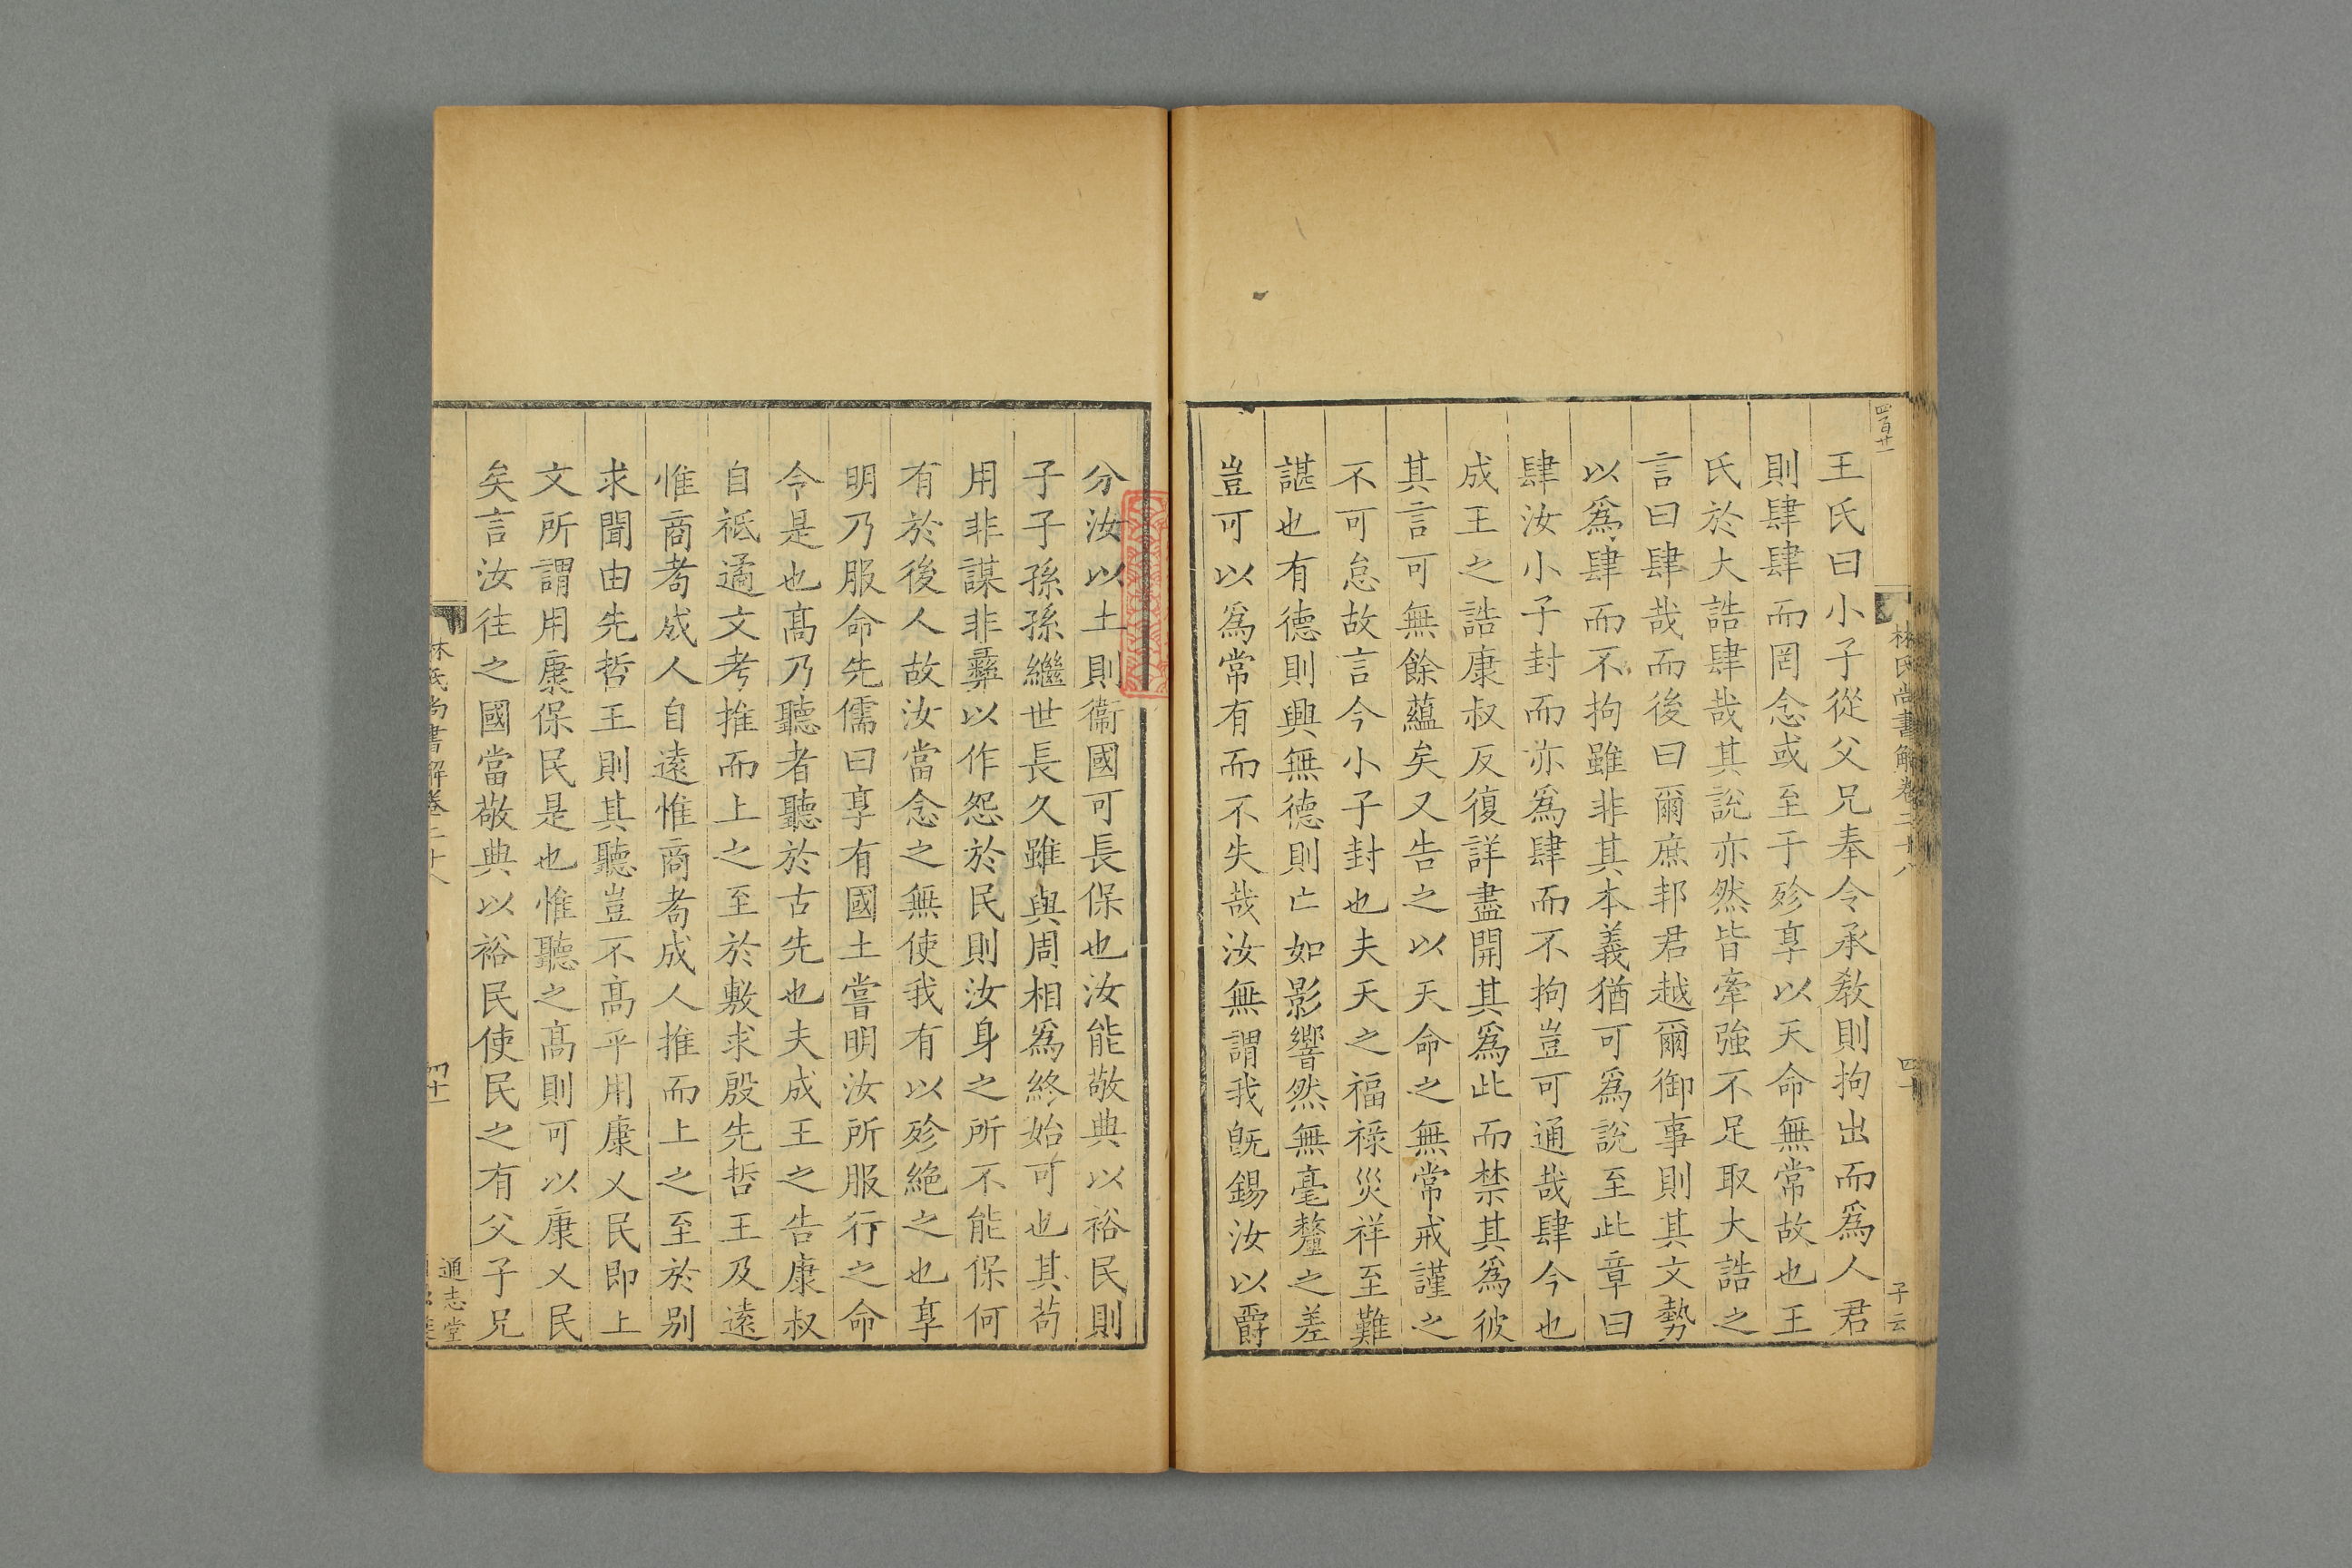 四百廿一
林氏尚書解卷二十八
四十
子云
王氏曰小子從父兄奉令承教則拘出而爲人君
則肆肆而罔念或至于殄享以天命無常故也王
氏於大誥肆哉其說亦然皆牽強不足取大誥之
言曰肆哉而後曰爾庶邦君越爾御事則其文勢
以爲肆而不拘雖非其本義猶可爲說至此章曰
肆汝小子封而亦爲肆而不拘豈可通哉肆今也
成王之誥康叔反復詳盡開其爲此而禁其爲彼
其言可無餘蘊矣又告之以天命之無常戒謹之
不可怠故言今小子封也夫天之福祿災祥至難
諶也有德則興無德則亡如影響然無毫釐之差
豈可以爲常有而不失哉汝無謂我旣錫汝以爵
分汝以土則衞國可長保也汝能敬典以裕民則
子子孫孫繼世長久雖與周相爲終始可也其苟
用非謀非彝以作怨於民則汝身之所不能保何
有於後人故汝當念之無使我有以殄絕之也享
明乃服命先儒曰享有國土當明汝所服行之命
今是也髙乃聽者聽於古先也夫成王之告康叔
自祗遹文考推而上之至於敷求殷先哲王及遠
惟商耇成人自遠惟商耇成人推而上之至於別
求聞由先哲王則其聽豈不髙乎用康乂民即上
文所謂用康保民是也惟聽之髙則可以康乂民
矣言汝往之國當敬典以裕民使民之有父子兄
林氏尚書解卷二十八
四十一
通志堂